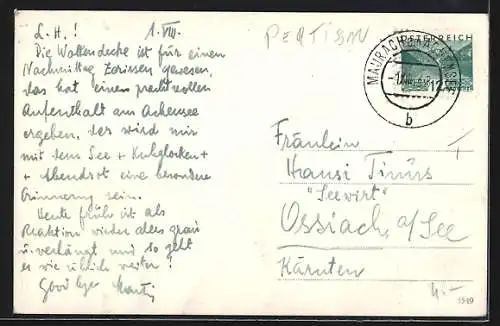 L. H.! 1. VIII.
Die Wolkendecke ist für einen
Nachmittag zerissen gewesen,
das hat einen prachtvollen
Aufenthalt am Achensee
ergeben, der wird mir
mit dem See + Kuhglocken +
+ Abendrot eine besondere
Erinnerung sein.
Heute früh ist als
Reaktion wieder alles grau
u. verhängt und so geht
es wie üblich weiter!
Good bye
PERTISAU
ÖSTERREICH
12
MAURACH
b
Fräulein
Hansi
"Seewirt"
Ossiach a/See
Kärnten
4.-
1549